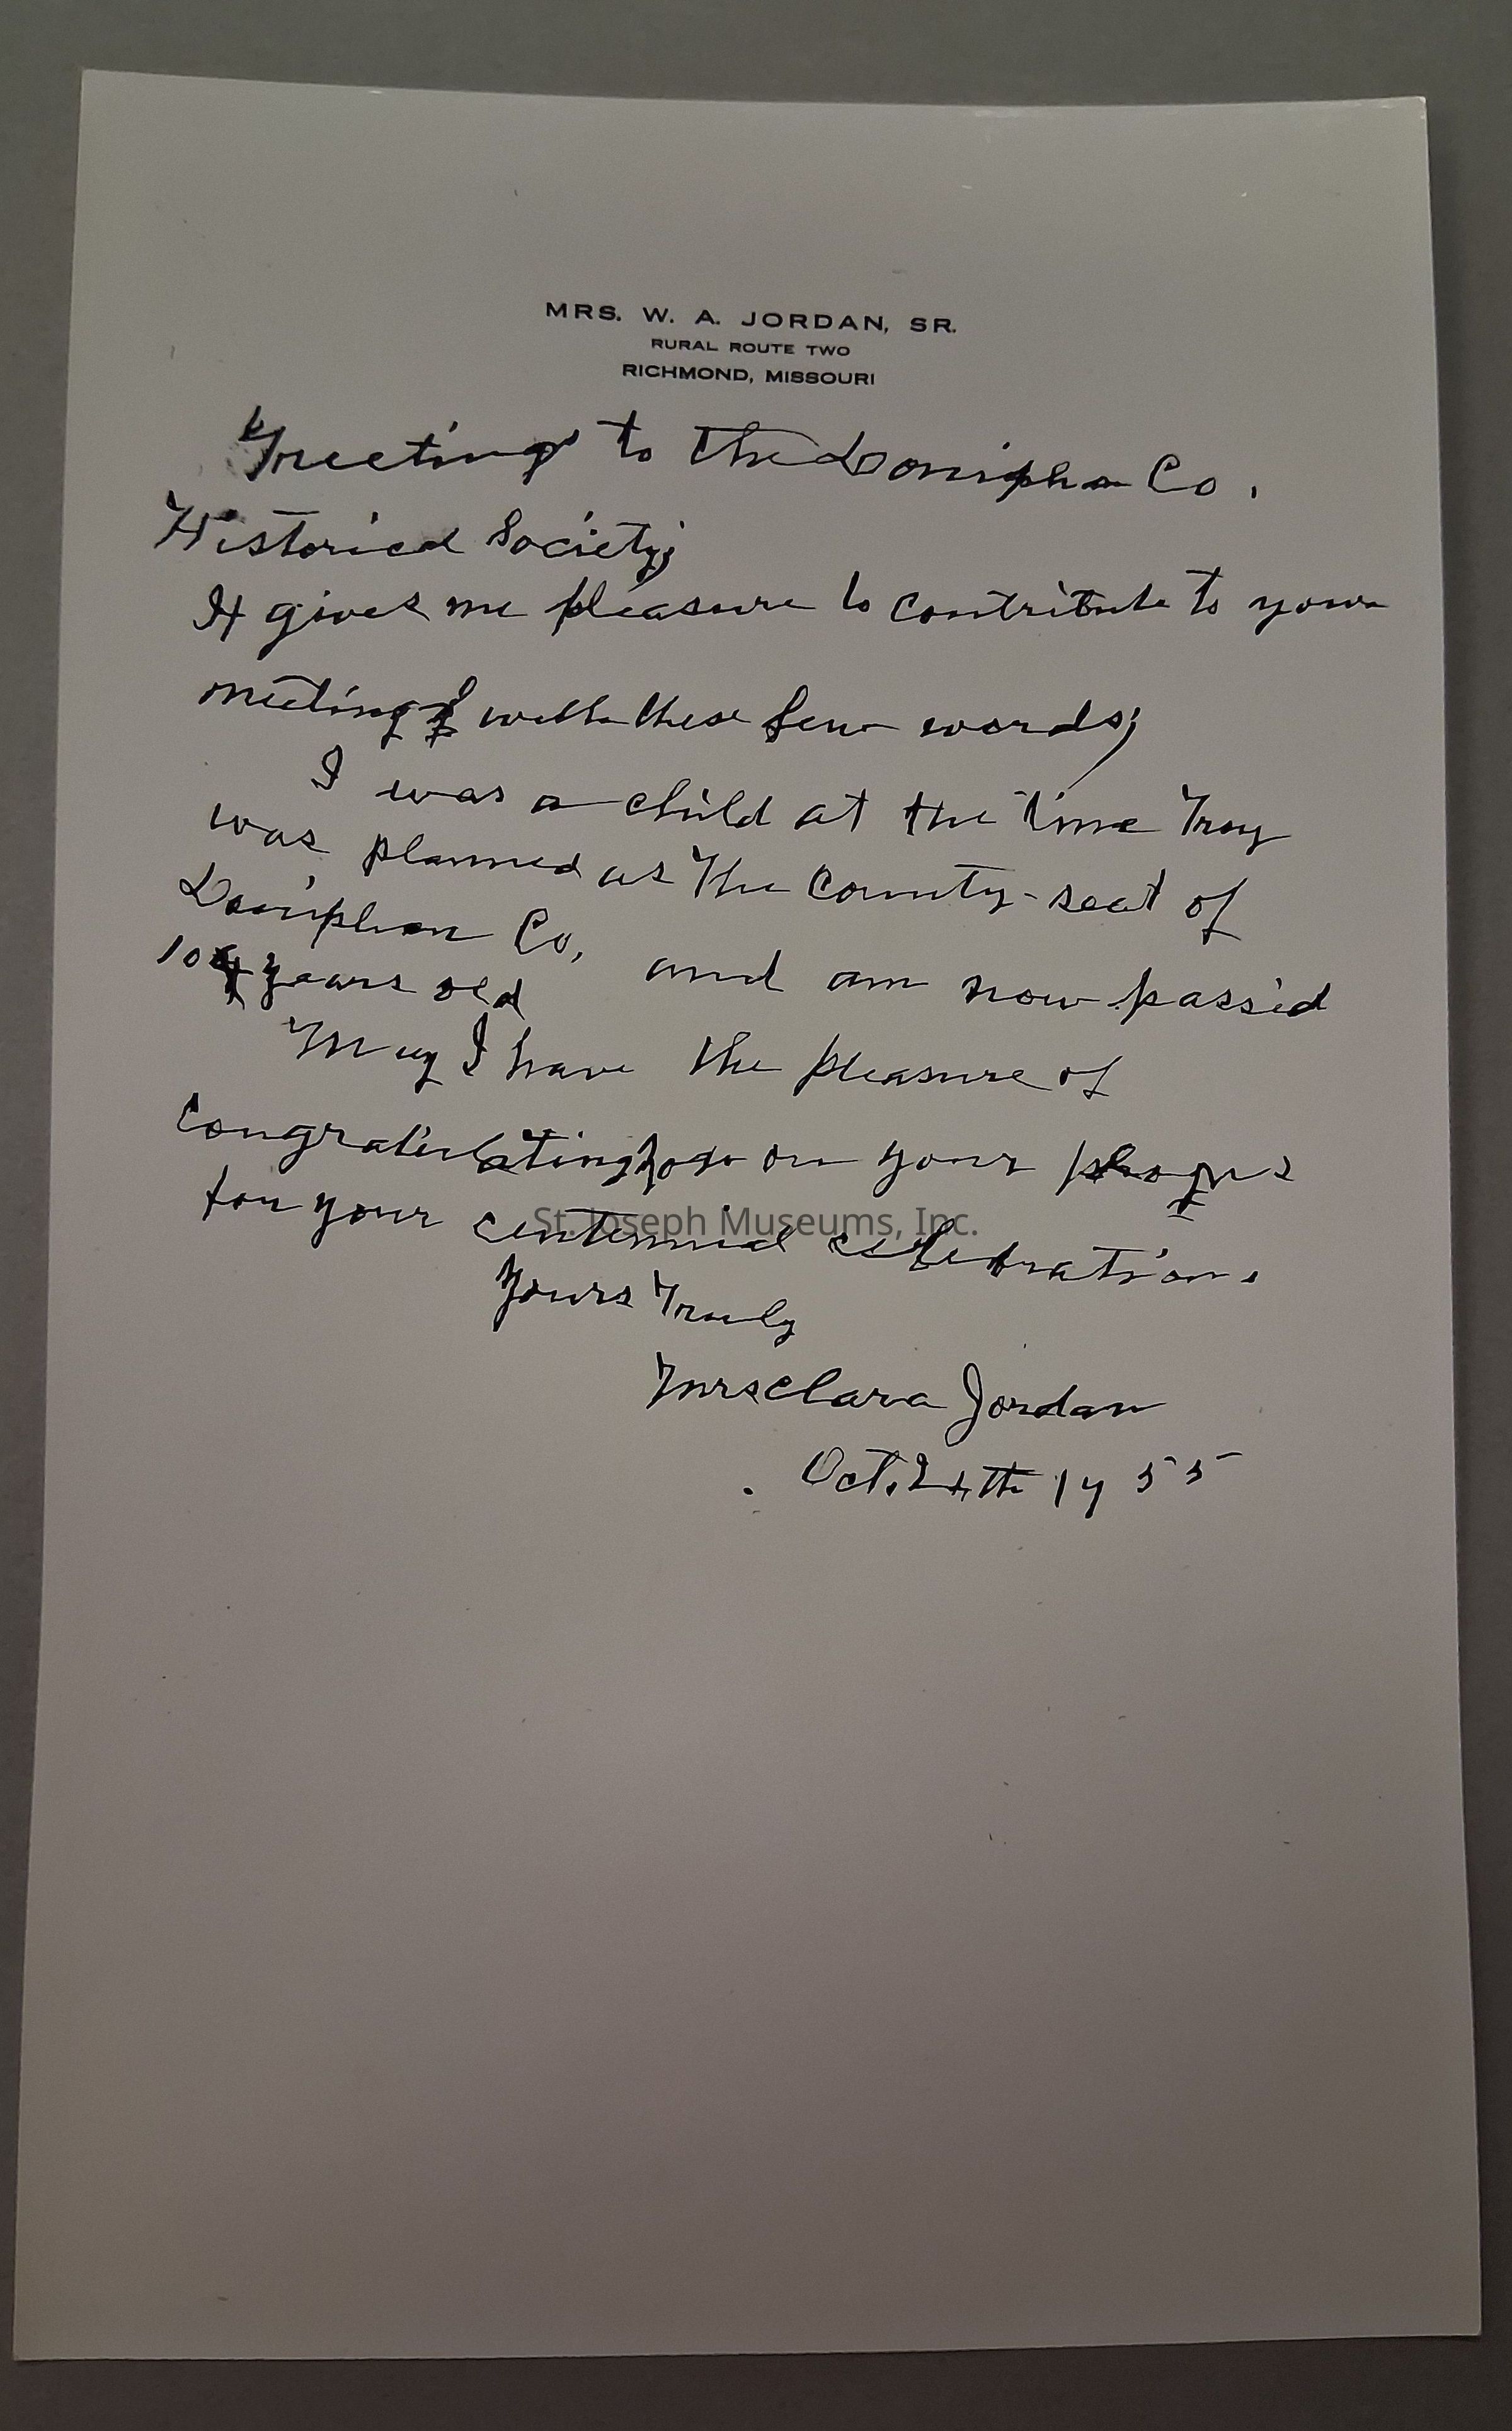 MRS. W. A. JORDAN, SR.
RURAL ROUTE TWO
RICHMOND, MISSOURI
Greeting to the Donipha Co.
Historical Society;
It gives me pleasure to contribute to your
meeting with these few words;
I was a child at the time Troy
was planned as The County-seat of
Doniphan Co, and am now passed
104 years old
May I have the pleasure of
Congratulating you on your
for your centennial celebration.
St. Joseph Museums, Inc.
Yours Truly
Mrs Clara Jordan
Oct. 1955